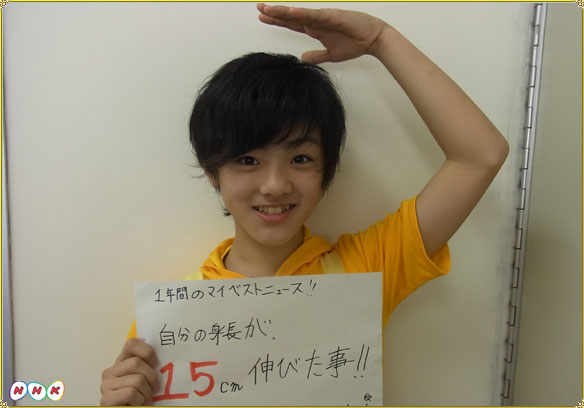 1年間のマイベストニュース!!
自分の身長が、
15cm 伸びた事!!
NHK